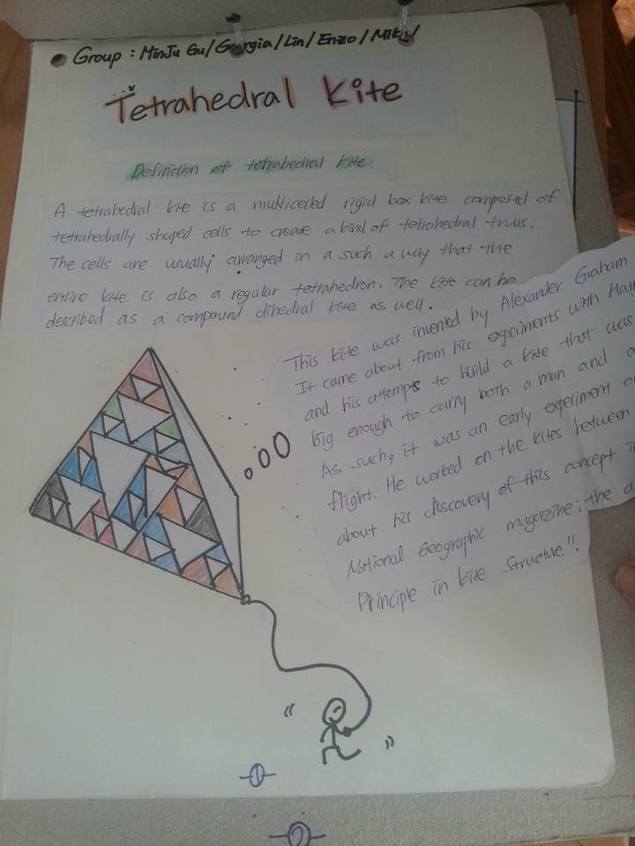 Group : MinJu Gu / Georgia / Lin / Enzo / Miki /
Tetrahedral Kite
Definition of tetrahedral kite.
A tetrahedral kite is a multicelled rigid box kite composed of
tetrahedrally shaped cells to create a kind of tetrahedral truss.
The cells are usually arranged in a such a way that the
entire kite is also a regular tetrahedron. The kite can be
described as a compound dihedral kite as well.
This kite was invented by Alexander Graham
It came about from his experiments with
and his attempts to build a kite that was
big enough to carry both a man and a
As such, it was an early experiment on
flight. He worked on the kites between
about his discovery of this concept in
National Geographic magazine: the
Principle in kite structure".
1
2